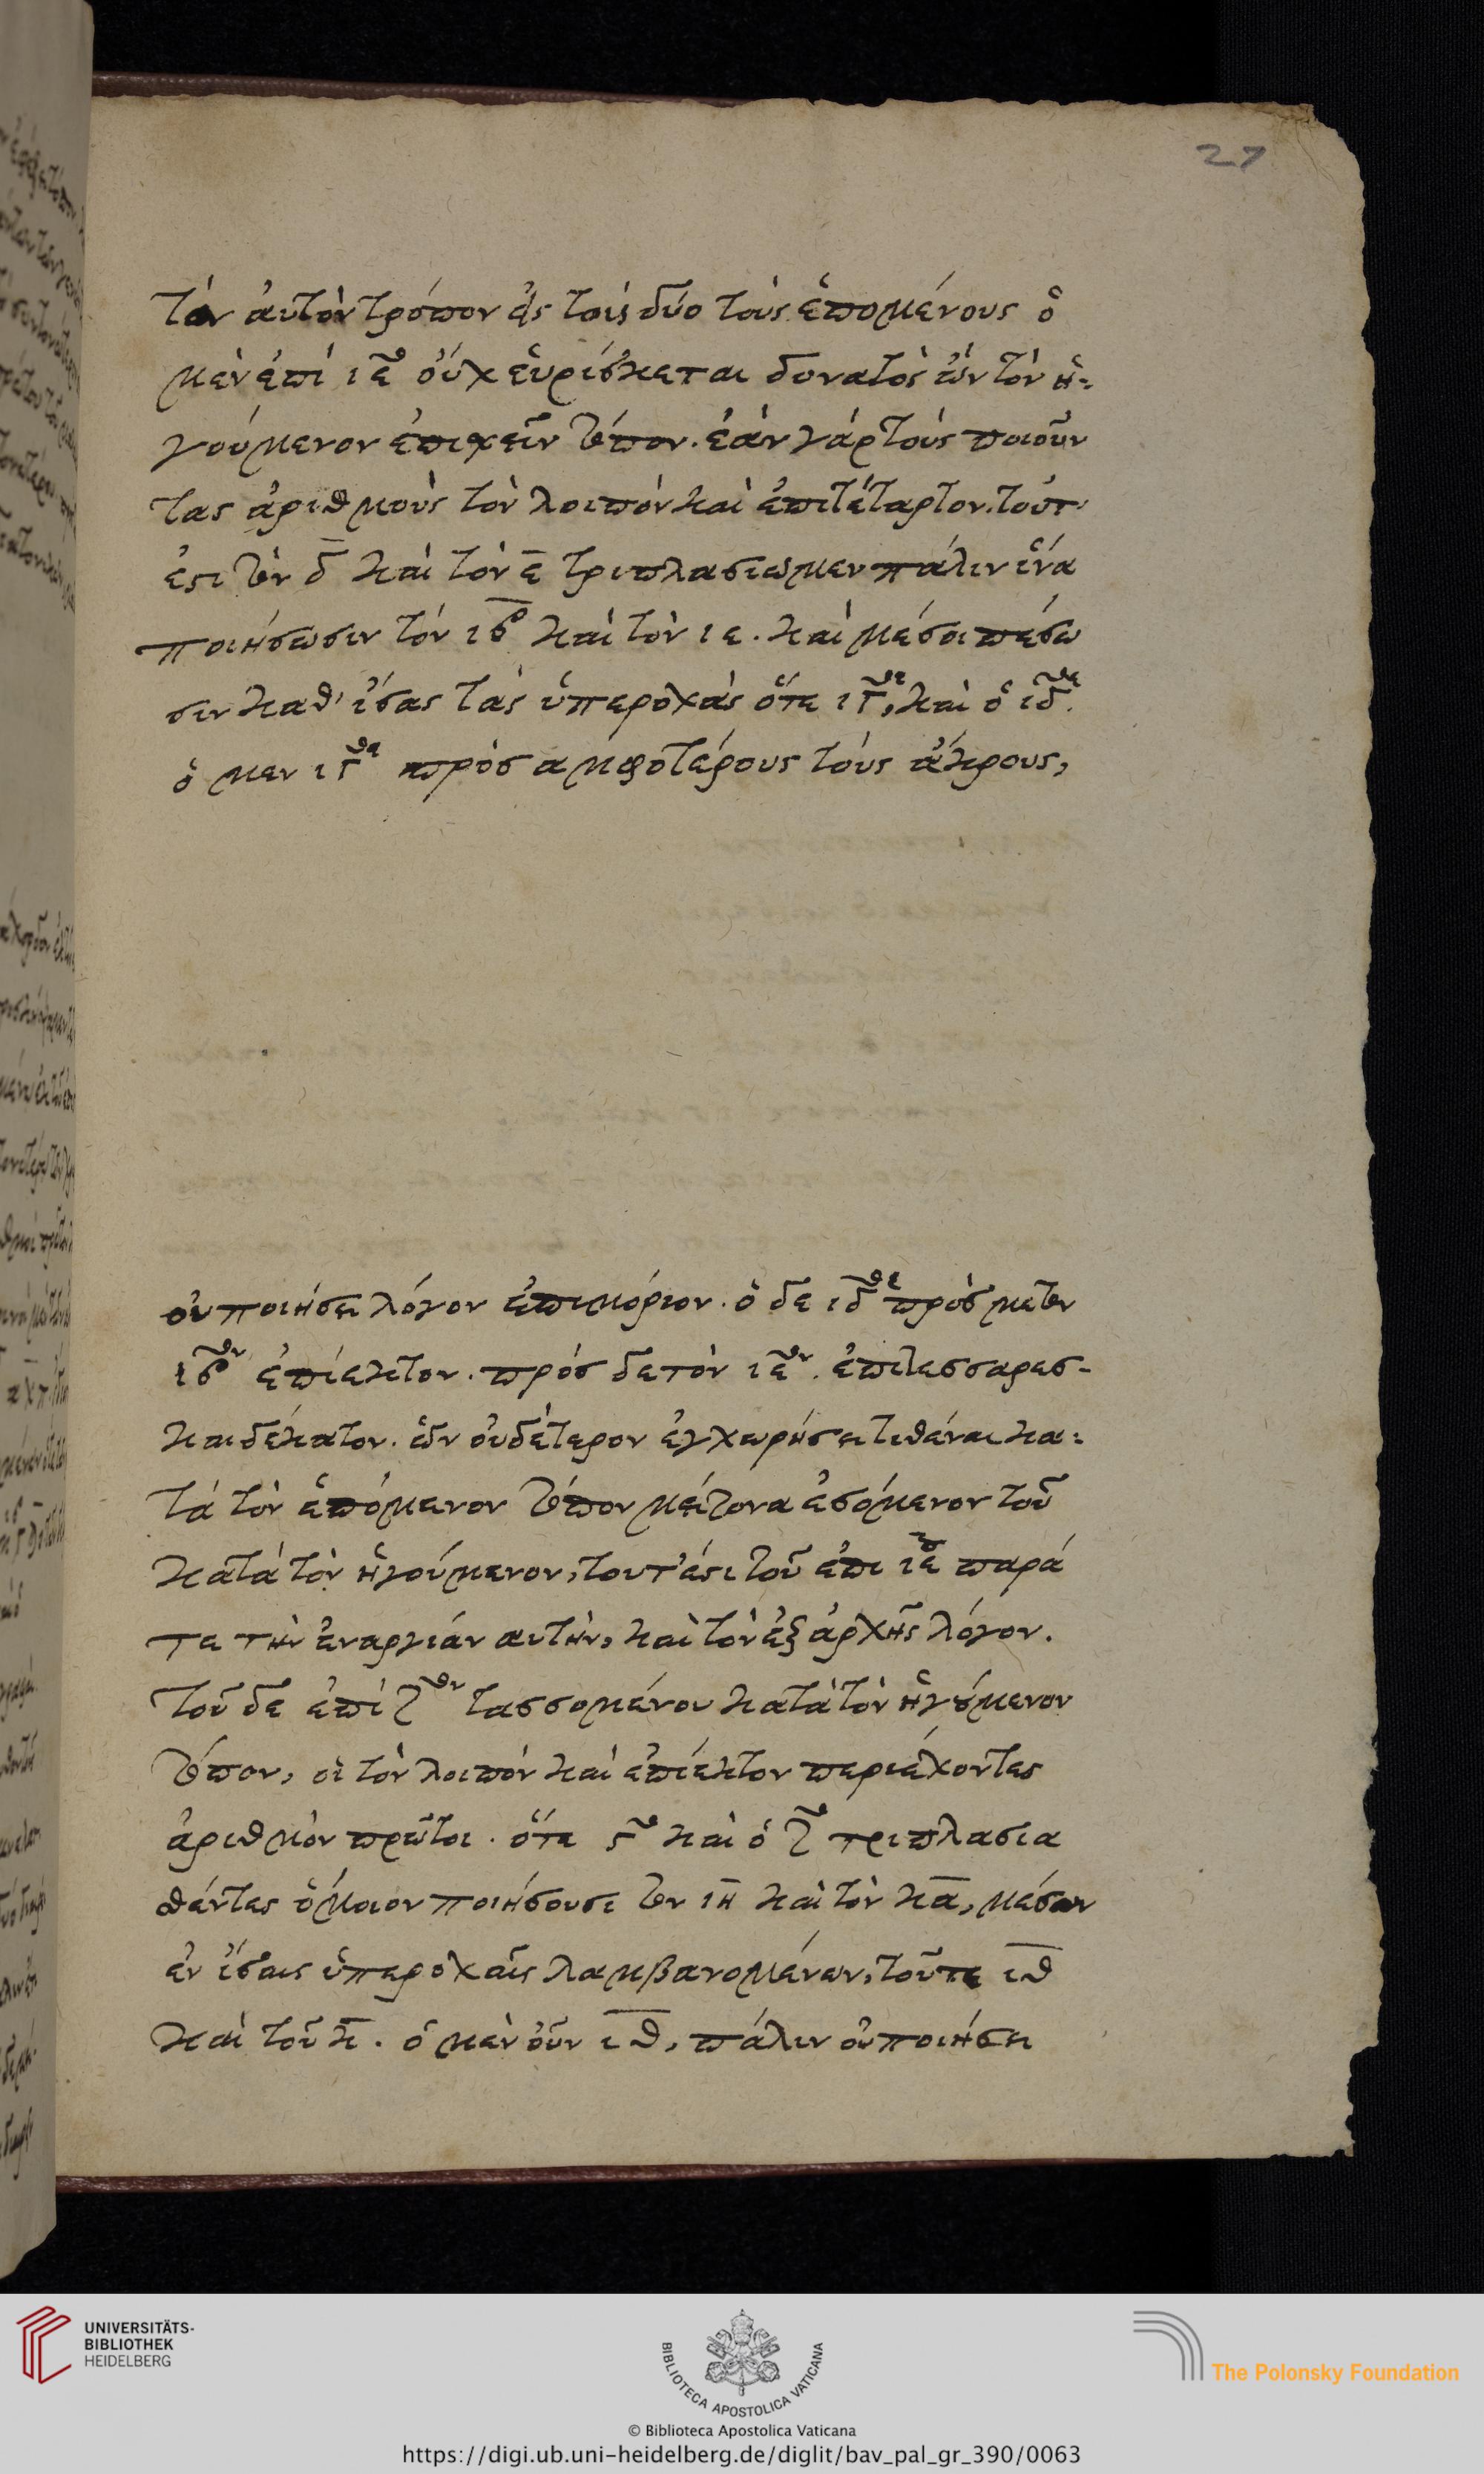 27
τὸν ἀυτὸν τρόπον εἰς τοὺς δύο τοὺς ἑπομένους ὁ
μὲν ἐπὶ ιε̅ οὐχ εὑρίσκεται δυνατὸς ὢν τὸν ἡ-
γούμενον ἐπιχεῖν τόπον. ἐὰν γὰρ τοὺς ποιοῦν
τας ἀριθμοὺς τὸν λοιπὸν καὶ ἐπιτέταρτον. τοῦτ'
ἐστι τὸν δ̅ καὶ τὸν ε̅ τριπλασιωμεν πάλιν ἵνα
ποιήσωσιν τὸν ιβ̅ καὶ τὸν ιε. καὶ μέσοι πέσω
σιν καθ' ἴσας τὰς ὑπεροχὰς ὅτε ιγος, καὶ ὁ ιδος.
ὁ μεν ιγος πρὸσ αμφοτέρους τοὺς ἄκρους,
οὐ ποιήσει λόγον ἐπιμόριον. ὁ δε ιδος πρὸς με τὸν
ιβον ἐπίεκτον. πρὸσ δε τὸν ιεον. ἐπιτεσσαρεσ-
καιδέκατον. ὧν οὐδέτερον ἐγχωρήσει τιθέναι κα-
τὰ τὸν ἑπόμενον τόπον μείζονα ἐσόμενον τοῦ
κατὰ τὸν ἡγούμενον, τουτ'έστι τοῦ ἐπι ιε̅ παρά
τε τὴν ἐναργιάν αυτὴν, καὶ τὸν ἐξ ἀρχῆς λόγον.
τοῦ δε ἐπὶ ζον τασσομένου κατὰ τὸν ἡγούμενον
τόπον, οἱ τὸν λοιπὸν καὶ ἐπίεκτον περιέχοντες
ἀριθμὸν πρῶτοι. ὅτε ϛο καὶ ὁ ζο τριπλασια
θέντες ὅμοιον ποιήσουσι τὸν ιη̅ καὶ τὸν κα̅, μέσων
ἐν ἴσαις ὑπεροχαῖς λαμβανομένων, τοῦτε ιθ̅
καὶ τοῦ κ̅. ὁ μὲν οὖν ιθ̅, πάλιν οὐ ποιήσει
UNIVERSITÄTS-
BIBLIOTHEK
HEIDELBERG
BIBLIOTECA APOSTOLICA VATICANA
The Polonsky Foundation
© Biblioteca Apostolica Vaticana
https://digi.ub.uni-heidelberg.de/diglit/bav_pal_gr_390/0063